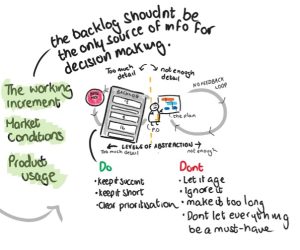 the backlog shouldnt be
the only source of info for
decision making.
Too much
detail
not enough
detail
NO FEEDBACK
LOOP
The working
increment
Market
Conditions
Product
usage
BACKLOG
the plan
PO
LEVELS OF ABSTRACTION
Too much detail
not enough
Do
• keep it succint
• keep it short
• Clear prioritisation
Dont
• Let it age
• Ignore it
• make it too long
• Dont let everything
be a must-have